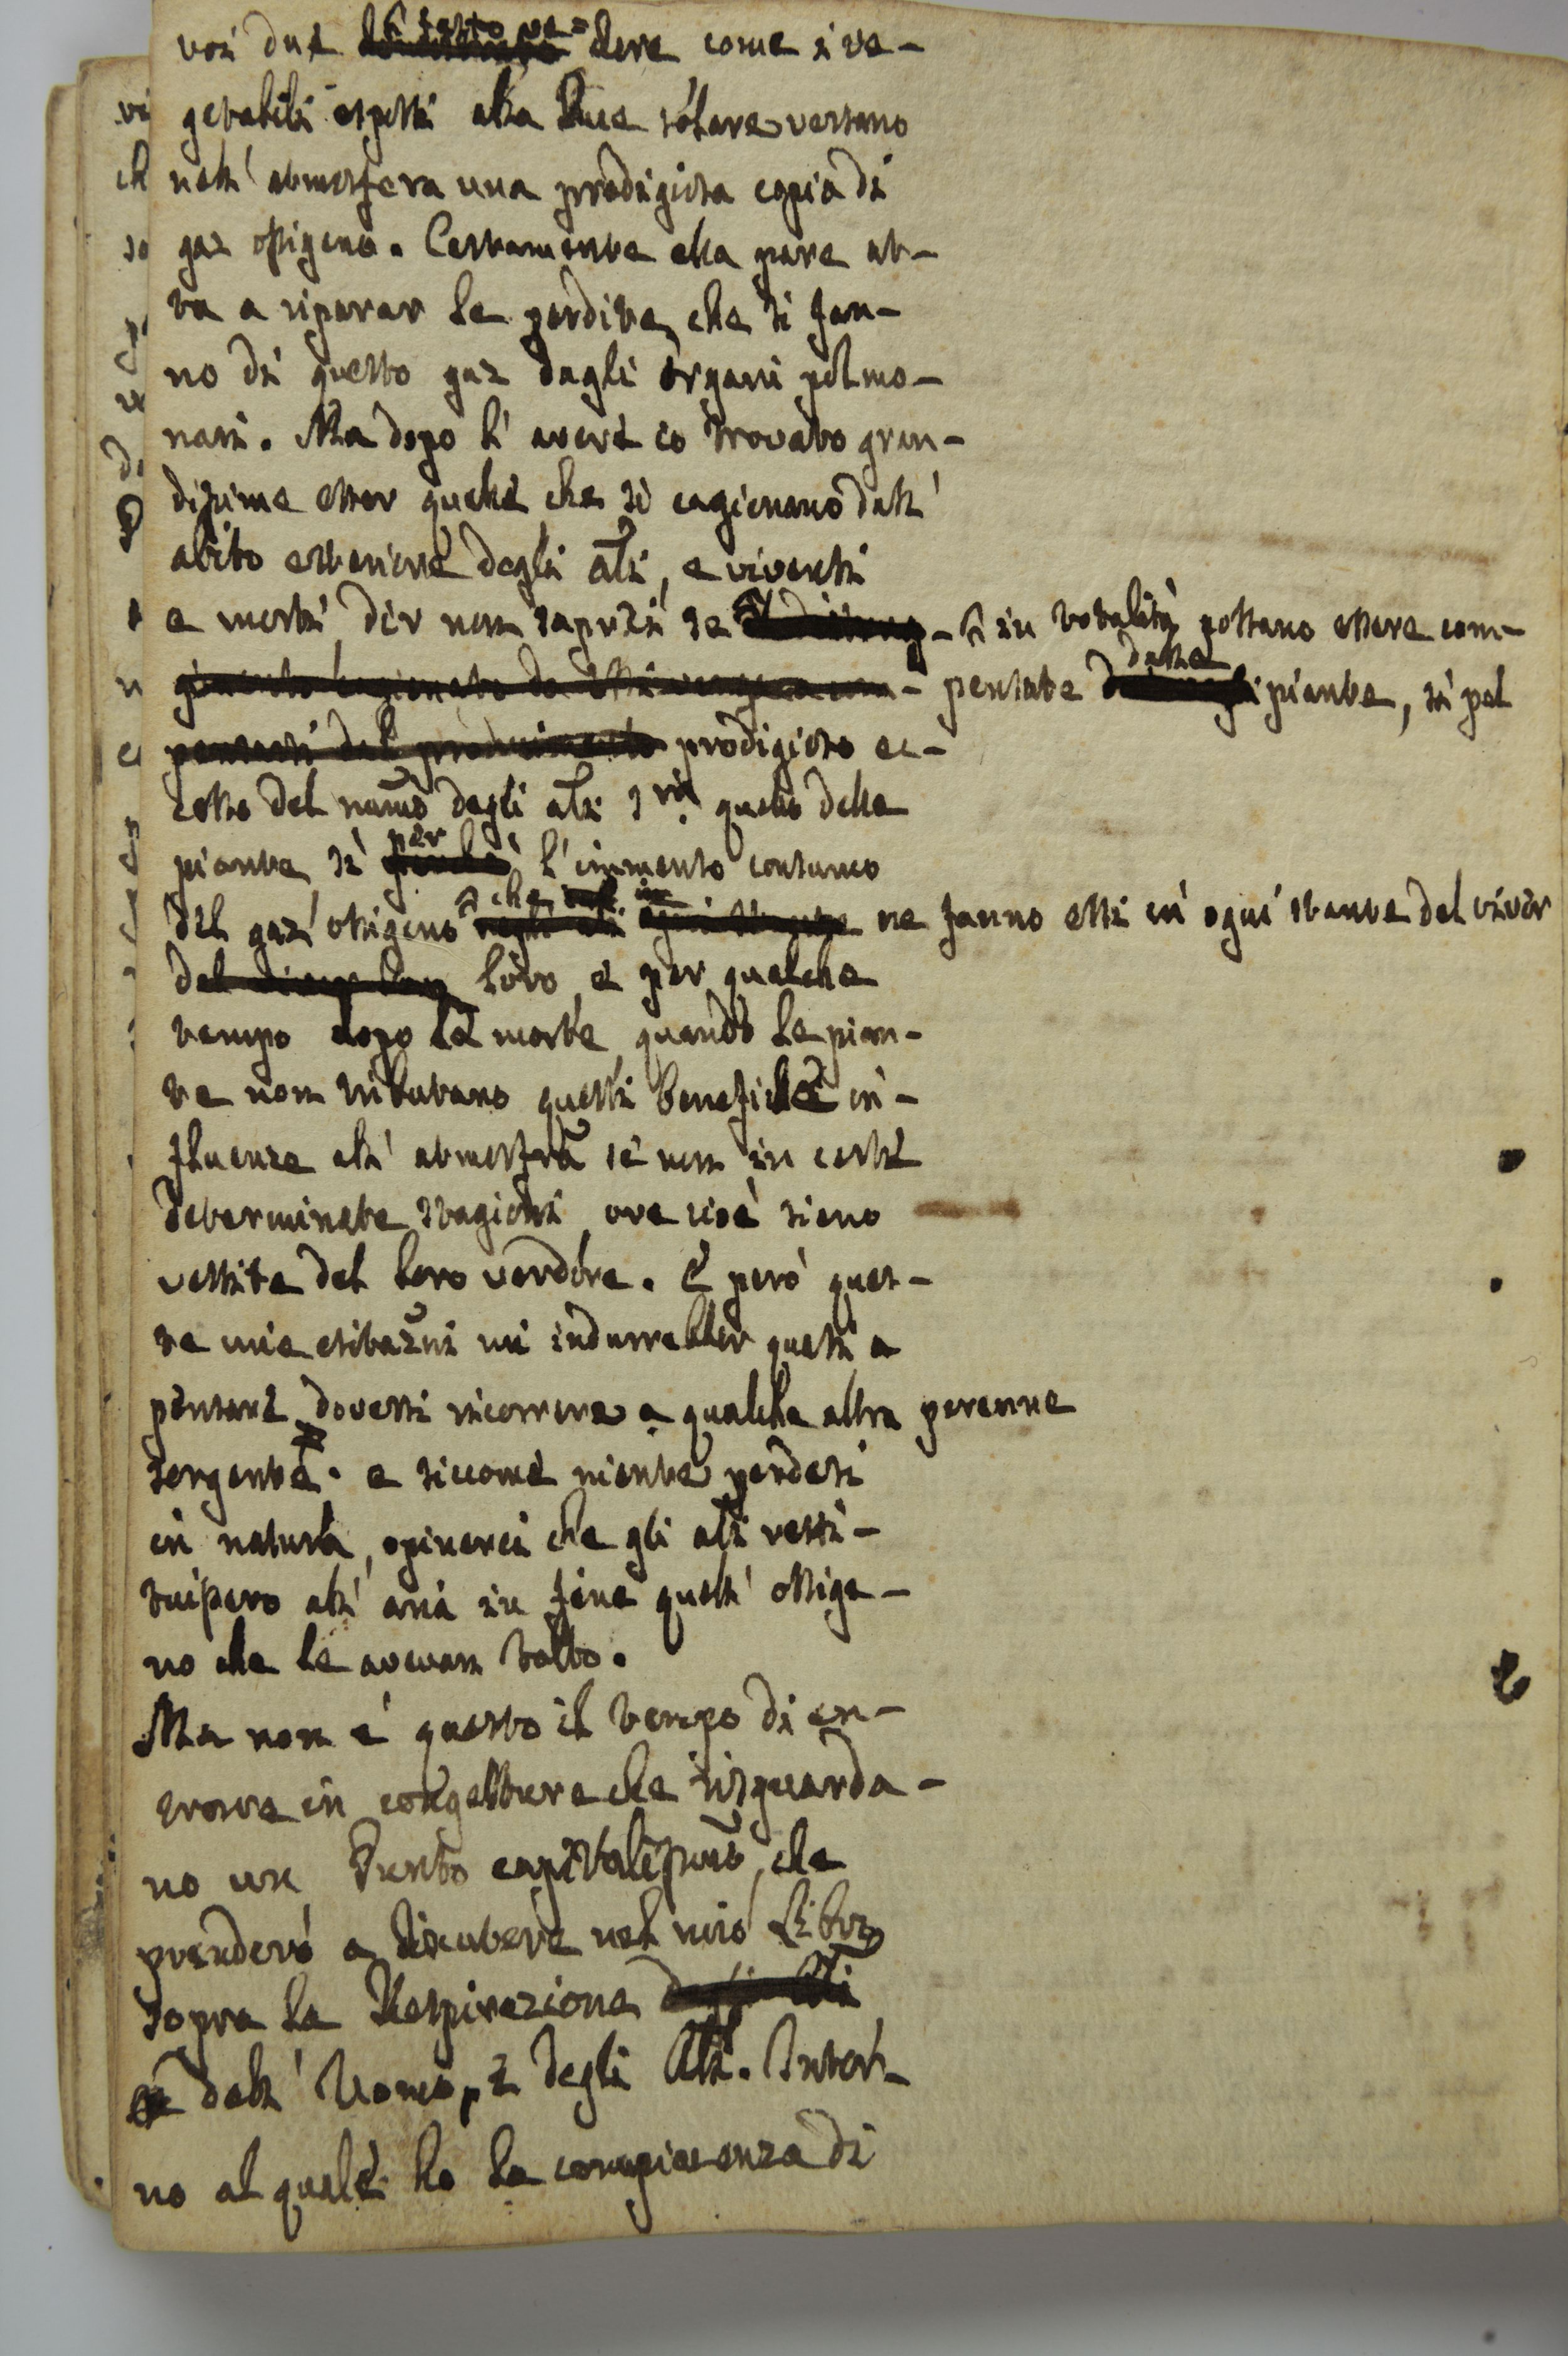 voi due fatto vedere come i ve-
getabili esposti alla luce solare versano
nell' atmosfera una prodigiosa copia di
gaz ossigeno. Certamente ella pare at-
ta a riparar le perdite, che si fan-
no di questo gaz dagli organi polmo-
nari. Ma dopo l' avere io trovato gran-
dissime esser quelle che si cagionano dall'
abito esteriore degli ali, e viventi
e morti, dir non saprei se in totalità possano essere com-
pensate dalle piante, sì pel
prodigioso ec-
cesso del numo degli ali quello delle
piante, sì per l' immenso consumo
del gaz ossigeno che ne fanno essi in ogni istante del viver
loro, e per qualche
tempo dopo la morte, quando le pian-
te non tributano questi benefiche in-
fluenze all' atmosfra se non in certe
determinate stagioni, ove cioè sieno
vestite del loro verdore. E però ques-
te mie esitazni mi indurrebber quasi a
pensare dovessi ricorrere a qualche altra perenne
sorgente. e siccome niente perdesi
in natura, opinerei che gli ali resti-
tuissero all' aria in fine quell' ossige-
no che le avevan tolto.
Ma non è questo il tempo di en-
trare in congetture che risguarda-
no un Punto capitalissimo, che
prenderò a discutere nel mio Libro
sopra la Respirazione degli Ali
dell' Uomo, e degli Ali. Intor-
no al quale ho la compiacenza di